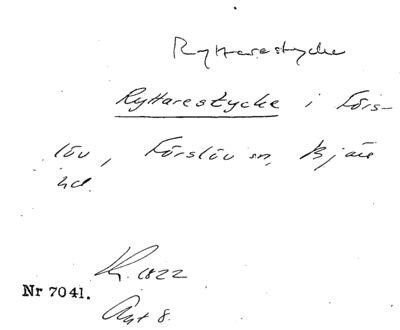 Ryttarestycke
Ryttarestycke i Förs-
löv, Förslöv sn, Bjäre
hd.
Kr. 1822
Nr 7041.
Akt 8.